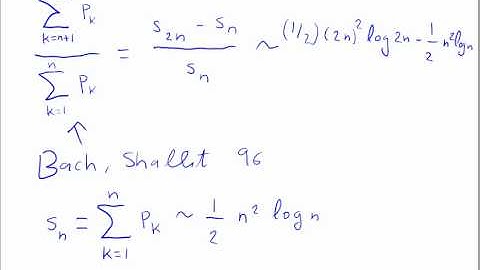 ∑ P_k
k=n+1
∑ P_k = (s_{2n} - s_n) / s_n ~ (1/2)(2n)² log 2n - 1/2 n² log n
n
k=1
Bach, Shallit 96
s_n = ∑_{k=1}^{n} P_k ~ 1/2 n² log n